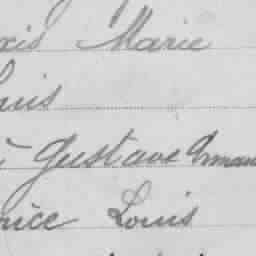 xis Marie
ouis
Gustave Arman
rice Louis